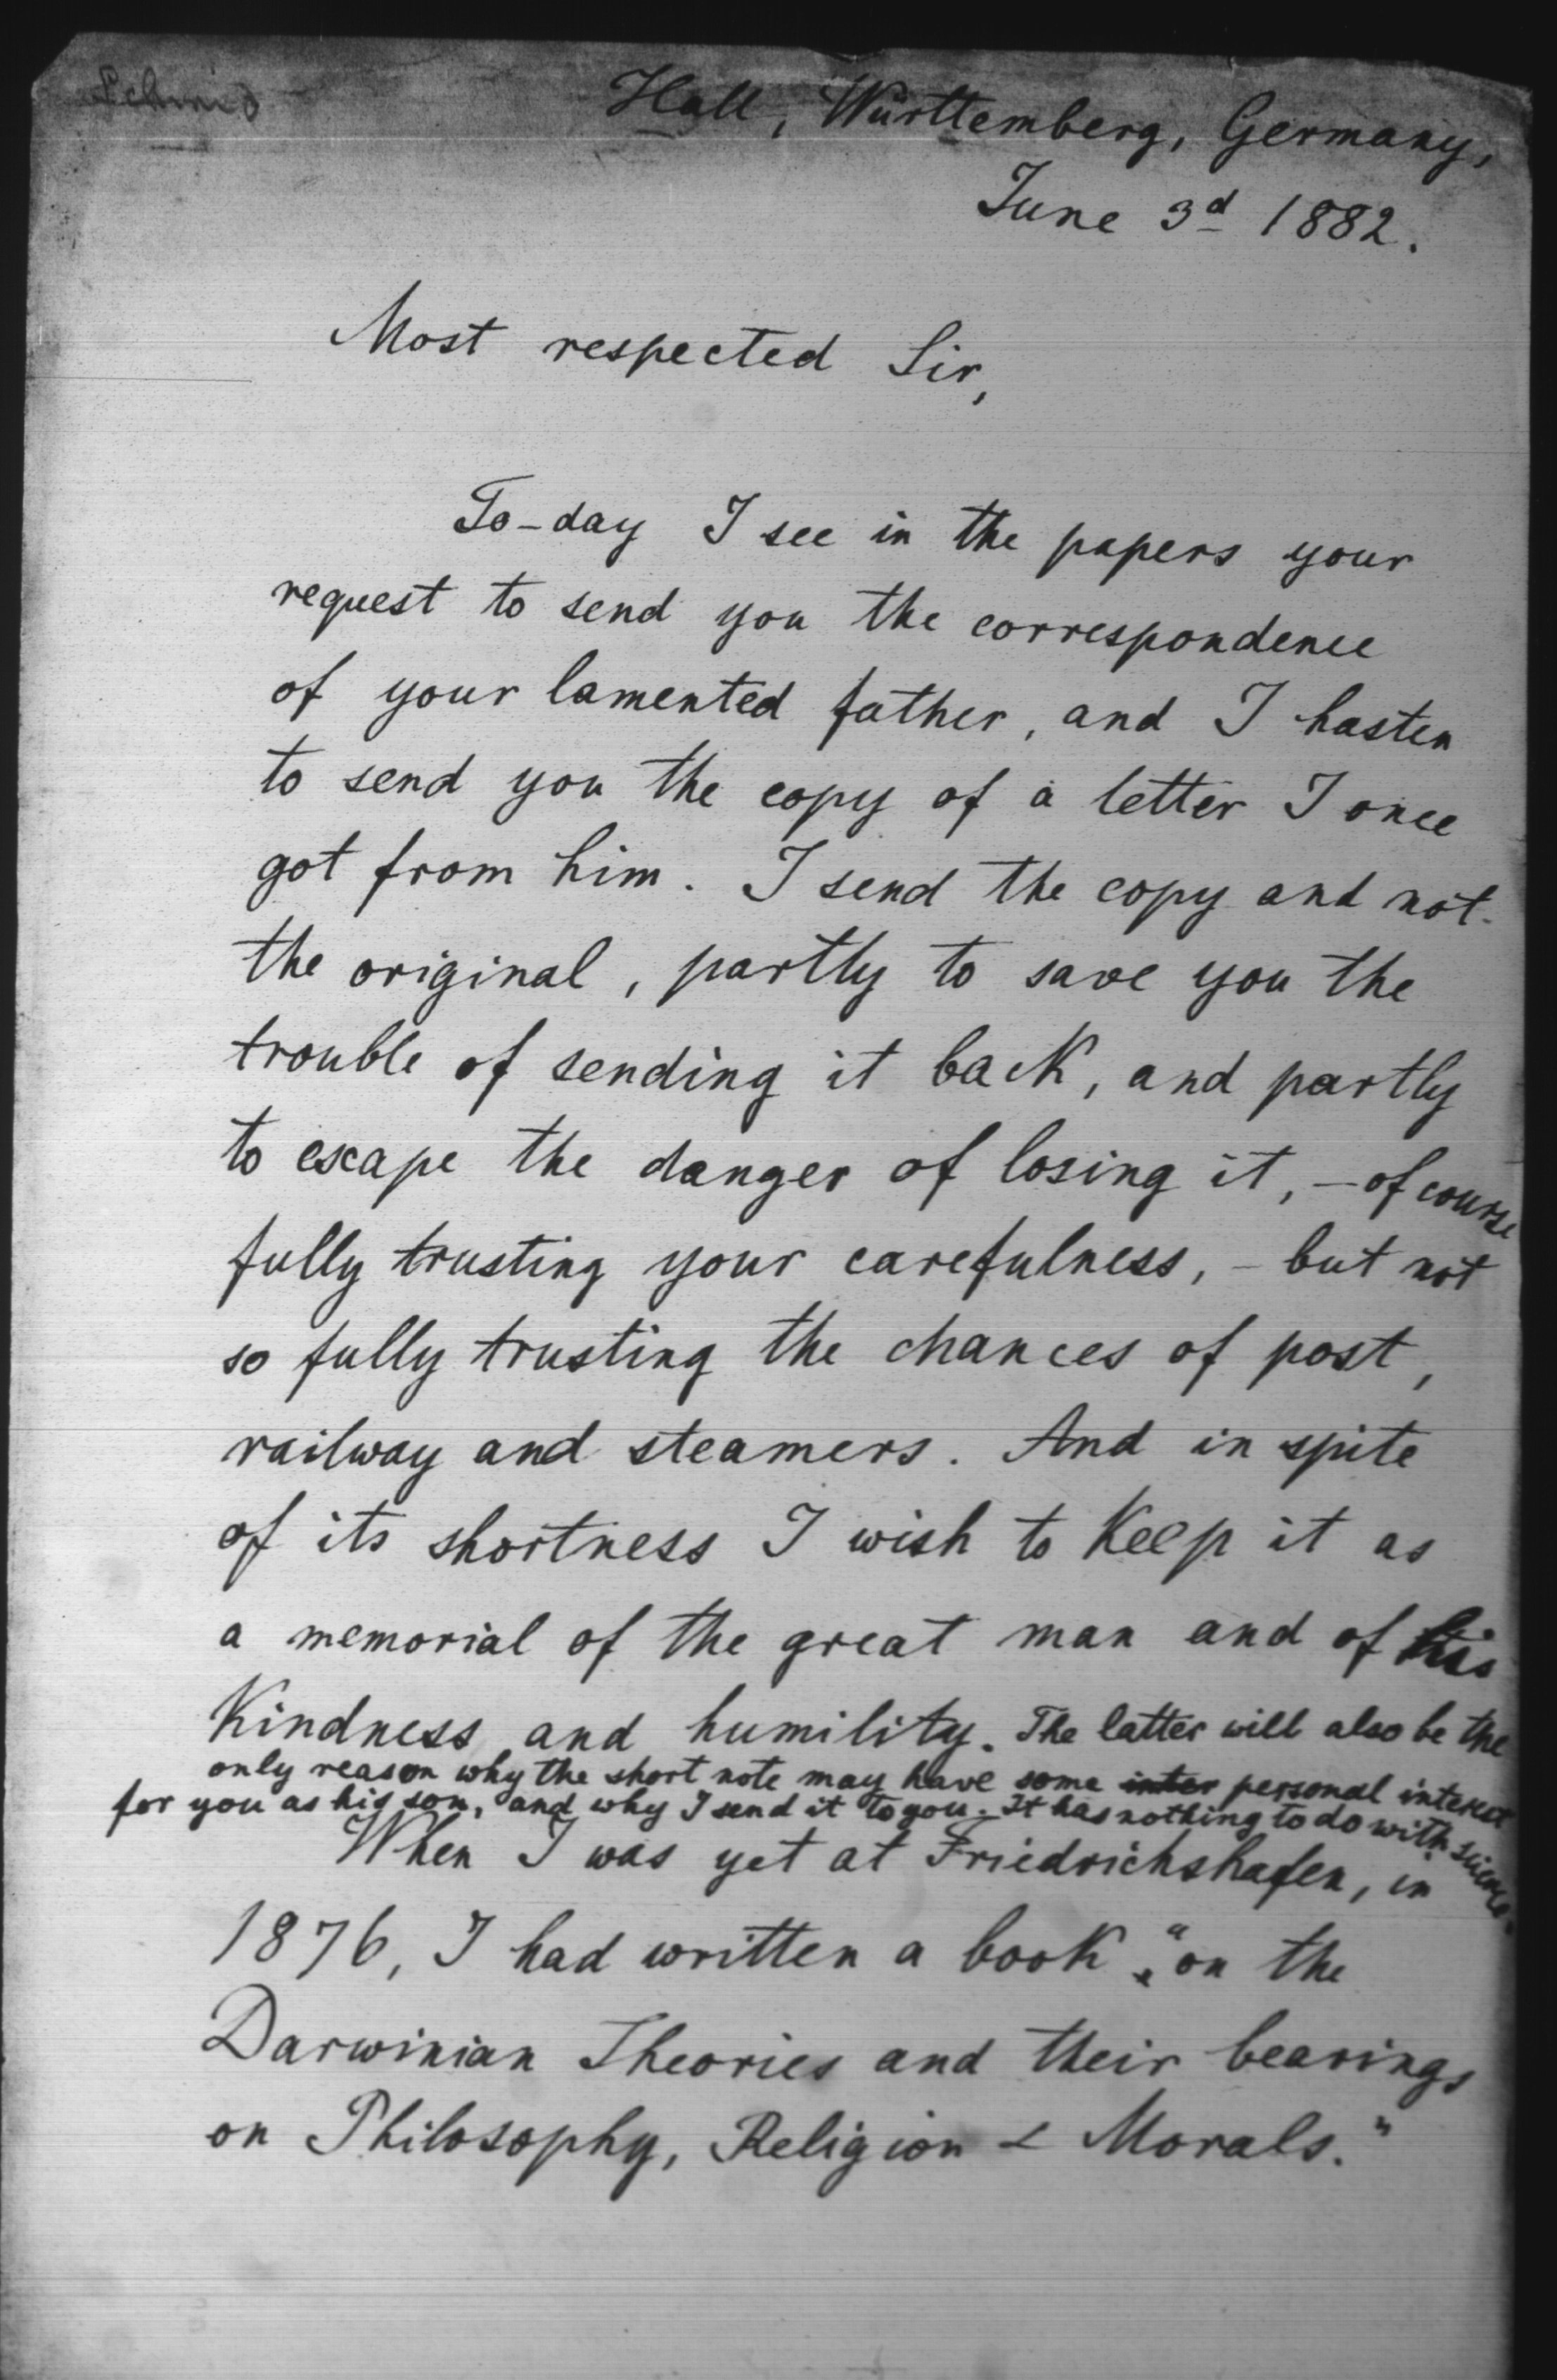 Schmid
Hall, Württemberg, Germany,
June 3d 1882.
Most respected Sir,
To-day I see in the papers your
request to send you the correspondence
of your lamented father, and I hasten
to send you the copy of a letter I once
got from him. I send the copy and not
the original, partly to save you the
trouble of sending it back, and partly
to escape the danger of losing it, – of course
fully trusting your carefulness, – but not
so fully trusting the chances of post,
railway and steamers. And in spite
of its shortness I wish to keep it as
a memorial of the great man and of his
Kindness and humility. The latter will also be the
only reason why the short note may have some inter personal interest
for you as his son, and why I send it to you. It has nothing to do with science.
When I was yet at Friedrichshafen, in
1876, I had written a book, "on the
Darwinian Theories and their bearings
on Philosophy, Religion & Morals."